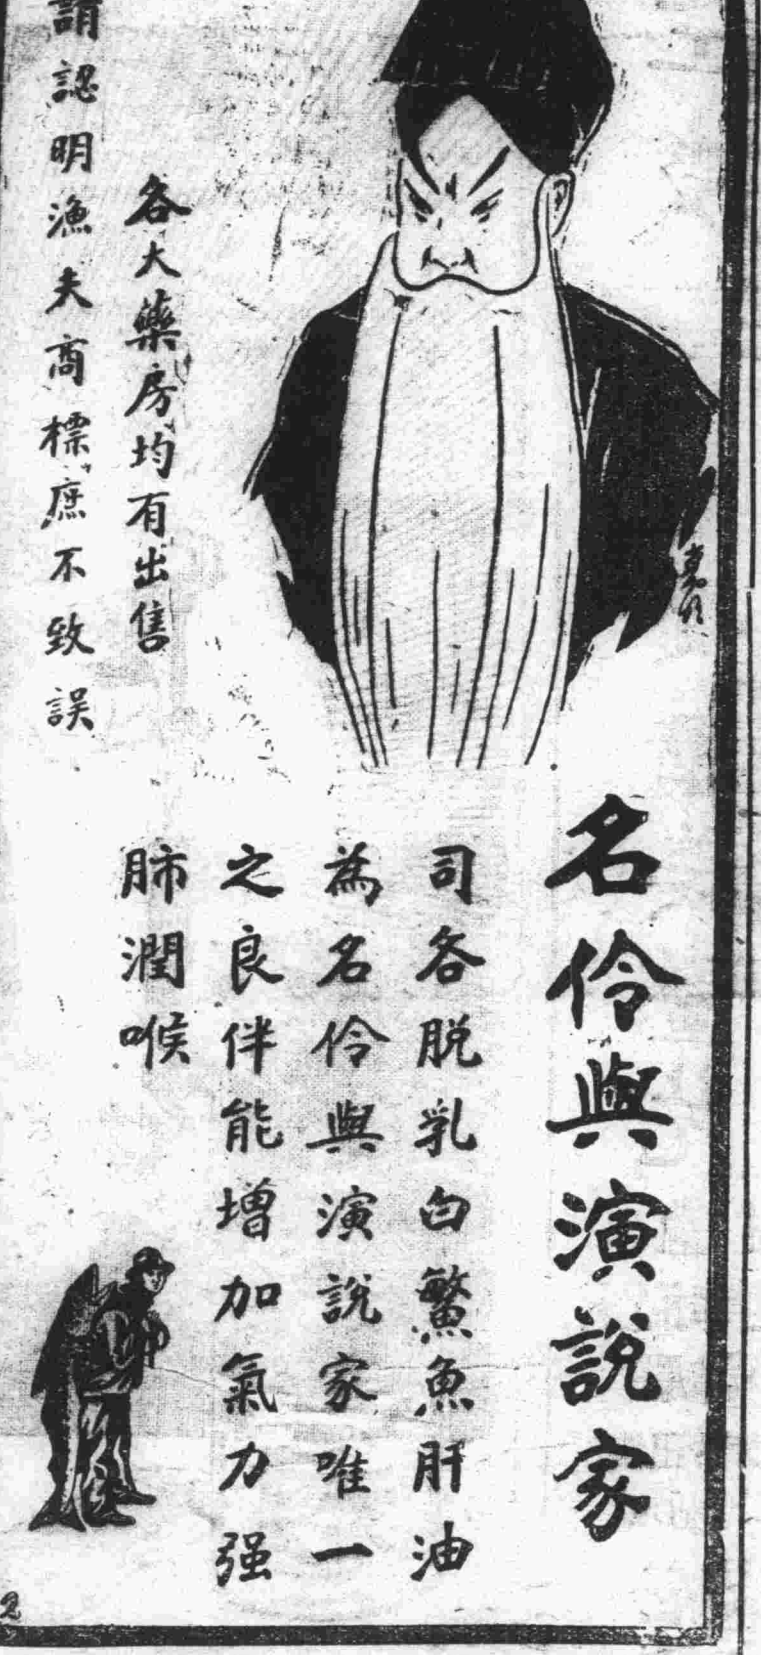 名伶與演說家
司各脫乳白鰵魚肝油
為名伶與演說家唯一
之良伴能增加氣力强
肺潤喉
各大藥房均有出售
請認明漁夫商標庶不致誤
2